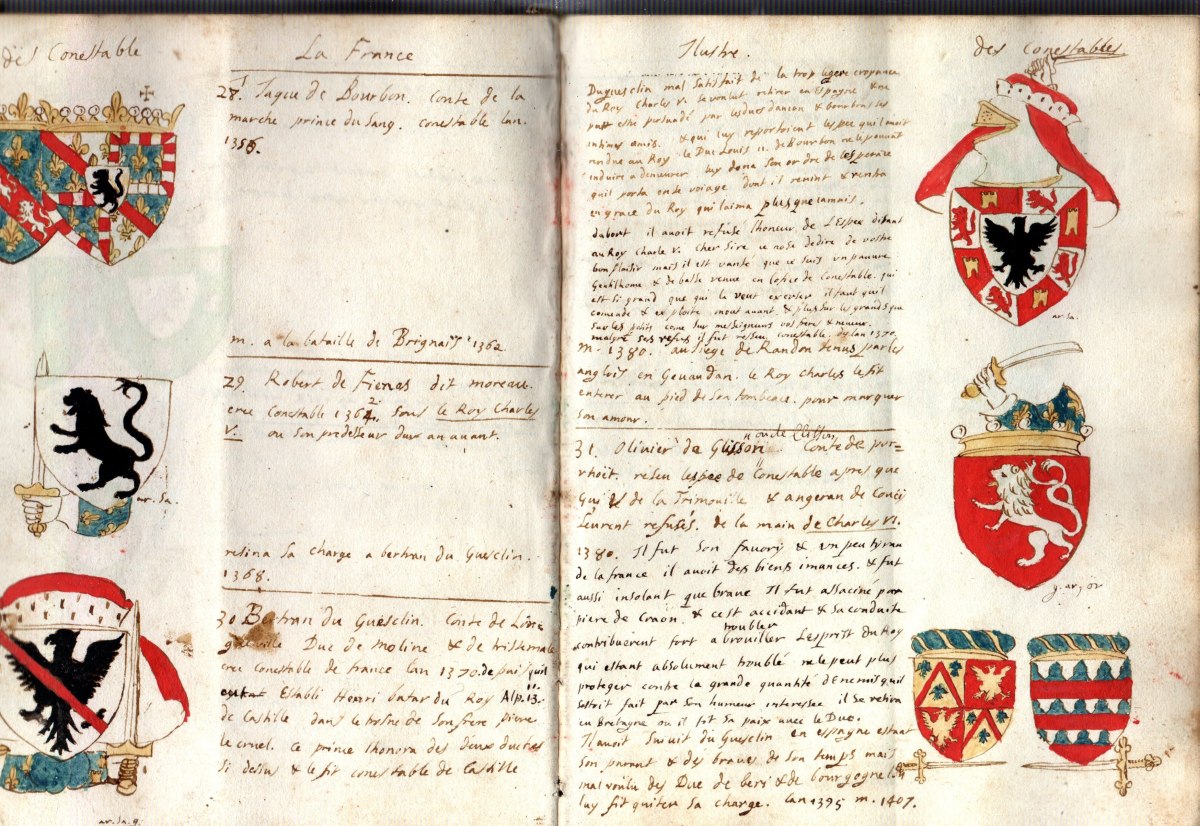 des Conestable
La France
28. Jaque de Bourbon. Conte de la
marche prince du Sang. conestable lan.
1356.
m. a la bataille de Brignais 1362
29. Robert de Fienes dit moreau.
cree Conestable 1362. Sous le Roy Charles
V. ou Son predesseur dux an auant.
ar. Sa.
resina Sa charge a bertran du Guesclin.
1368.
30 Bertran du Guesclin. Conte de Lon=
gueville Duc de moline & de tristemale
cree conestable de france lan 1370. de puis quil
Establi Henri batar du Roy Alp. 11.
de Castille dans le trosne de Son frere pierre
le cruel. Ce prince lhonora des deux duches
Si desus & le fit conestable de Castille
ar. Sa. g.
Ilustre.
des conestables.
Duguesclin mal Satisfait de la trop legere croyance
du Roy Charles V. Se voulut retirer en Espagne & ne
put estre persuadé par les ducs danjou & bourbon ses
intimes amis. & qui luy reportoient lespee quil avoit
rendue au Roy. le Duc Louis II. de Bourbon ne le pouvant
induire a demeurer luy dona Son ordre de lesperance
quil porta en ce voiage dont il revint & rentra
en grace du Roy qui laima plus que iamais.
dabort il auoit refusé lhoneur de LEspee disant
au Roy Charle V. Cher Sire ie nose dedire de vostre
bon plaisir mais il est verité que ie suis un pauure
Gentilhome & de basse venue en lofice de Conestable. qui
est Si grand que qui la veut exercer il faut quil
comende & exploite mout auant & plus sur les grands que
Sur les petits come Sur messeigneurs vos frere & neueux.
malgré Ses refus il fut resseu conestable. dy lan 1370.
m. 1380. au siege de Randon tenus par les
anglois en Geuaudan. le Roy charles le fit
enterer au pied de Son tombeau. pour marquer
Son amour.
ar. Sa.
ou de Clisson
31. Olivier de Glisson Conte de por=
rhoit. reseu lespee de Conestable apres que
Gui & de la Trimouille & angeran de Couci
Leurent refusés. de la main de Charles VI.
1380. Il fut Son fauory & un peu tyran
de la france il auoit des biens imances. & fut
aussi insolant que braue Il fut assaciné par
piere de Craon. & cest accidant & Sa conduite
troubler
contribuerent fort a brouiller Lesprit du Roy
qui estant absolument troublé ne le peut plus
proteger contre la grande quantité dEnemis quil
Sestoit fait par Son humeur interessee il Se retira
en Bretagne ou il fit Sa paix auec le Duc.
Il auoit Suiuit du Guesclin en espagne estant
Son parant & des braues de Son temps mais
mal voulu des Duc de beri & de bourgogne
luy fit quiter Sa charge. lan 1395 m. 1407.
g. ar, or